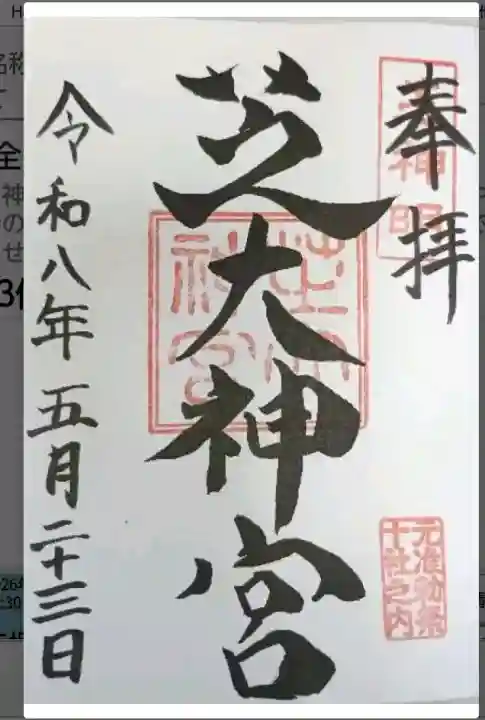 奉拝
芝大神宮
令和八年五月二十三日
元准勅祭
十社之内